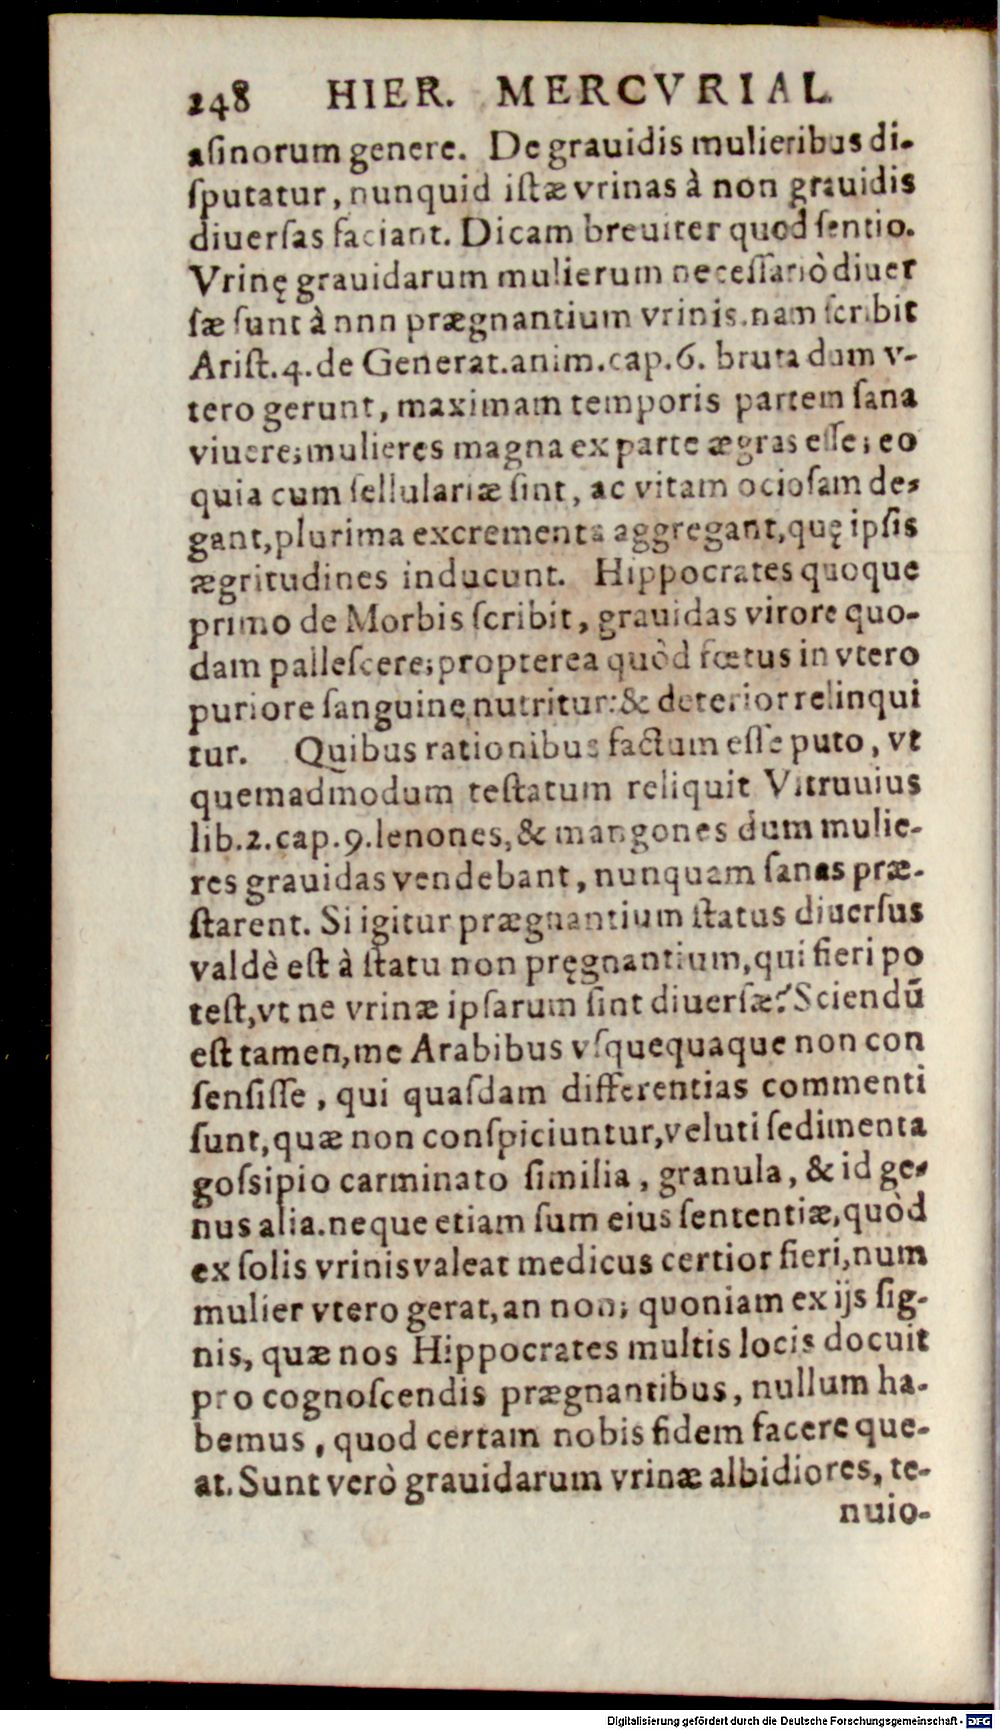 248 HIER. MERCVRIAL.
aſinorum genere. De grauidis mulieribus di-
ſputatur, nunquid iſtæ vrinas à non grauidis
diuerſas faciant. Dicam breuiter quod ſentio.
Vrinę grauidarum mulierum neceſſariò diuer
ſæ ſunt à nnn prægnantium vrinis. nam ſcribit
Ariſt. 4. de Generat. anim. cap. 6. bruta dum v-
tero gerunt, maximam temporis partem ſana
viuere; mulieres magna ex parte ægras eſſe; eo
quia cum ſellulariæ ſint, ac vitam ocioſam de-
gant, plurima excrementa aggregant, quę ipſis
ægritudines inducunt. Hippocrates quoque
primo de Morbis ſcribit, grauidas virore quo-
dam palleſcere; propterea quòd fœtus in vtero
puriore ſanguine nutritur: & deterior relinqui
tur. Quibus rationibus factum eſſe puto, vt
quemadmodum teſtatum reliquit Vitruuius
lib. 2. cap. 9. lenones, & mangones dum mulie-
res grauidas vendebant, nunquam ſanas præ-
ſtarent. Si igitur prægnantium ſtatus diuerſus
valdè eſt à ſtatu non pręgnantium, qui fieri po
teſt, vt ne vrinæ ipſarum ſint diuerſæ? Sciendū
eſt tamen, me Arabibus vſquequaque non con
ſenſiſſe, qui quaſdam differentias commenti
ſunt, quæ non conſpiciuntur, veluti ſedimenta
goſsipio carminato ſimilia, granula, & id ge-
nus alia. neque etiam ſum eius ſententiæ, quòd
ex ſolis vrinis valeat medicus certior fieri, num
mulier vtero gerat, an non; quoniam ex ijs ſig-
nis, quæ nos Hippocrates multis locis docuit
pro cognoſcendis prægnantibus, nullum ha-
bemus, quod certam nobis fidem facere que-
at. Sunt verò grauidarum vrinæ albidiores, te-
nuio-
Digitalisierung gefördert durch die Deutsche Forschungsgemeinschaft - DFG